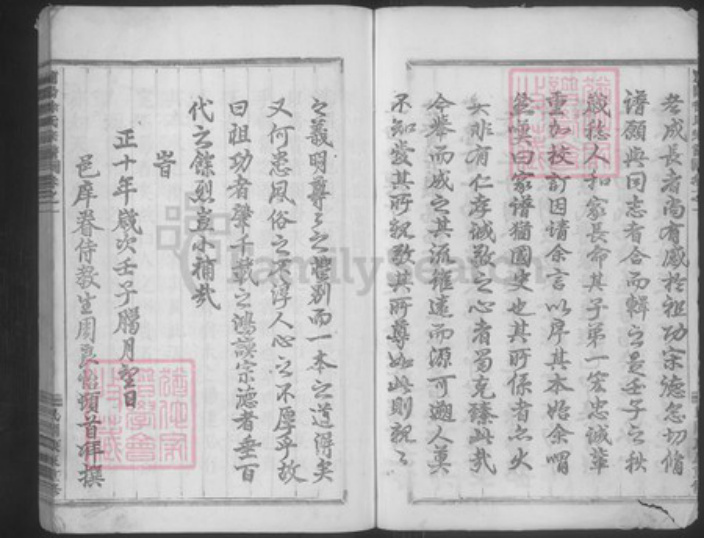 老成長者尚有感於祖功宗德怠切脩
譜願與同志者合而輯之是壬子之秋
歲稔人和家長命其子弟一宏忠誠輩
重加校訂因請余言以序其本始余喟
然嘆曰家譜猶國史也其所係者亦大
矣非有仁孝誠敬之心者曷克臻此哉
今舉而成之其流雖遠而源可遡人莫
不知愛其所親敬其所尊如此則親之
之義明尊之之禮別而一本之道得矣
又何患風俗之不淳人心之不厚乎故
曰祖功者肇千載之鴻謨宗德者垂百
代之餘烈豈小補哉
旹
正十年歲次壬子臘月望日
邑庠眷侍教生周頓首拜撰
FamilySearch